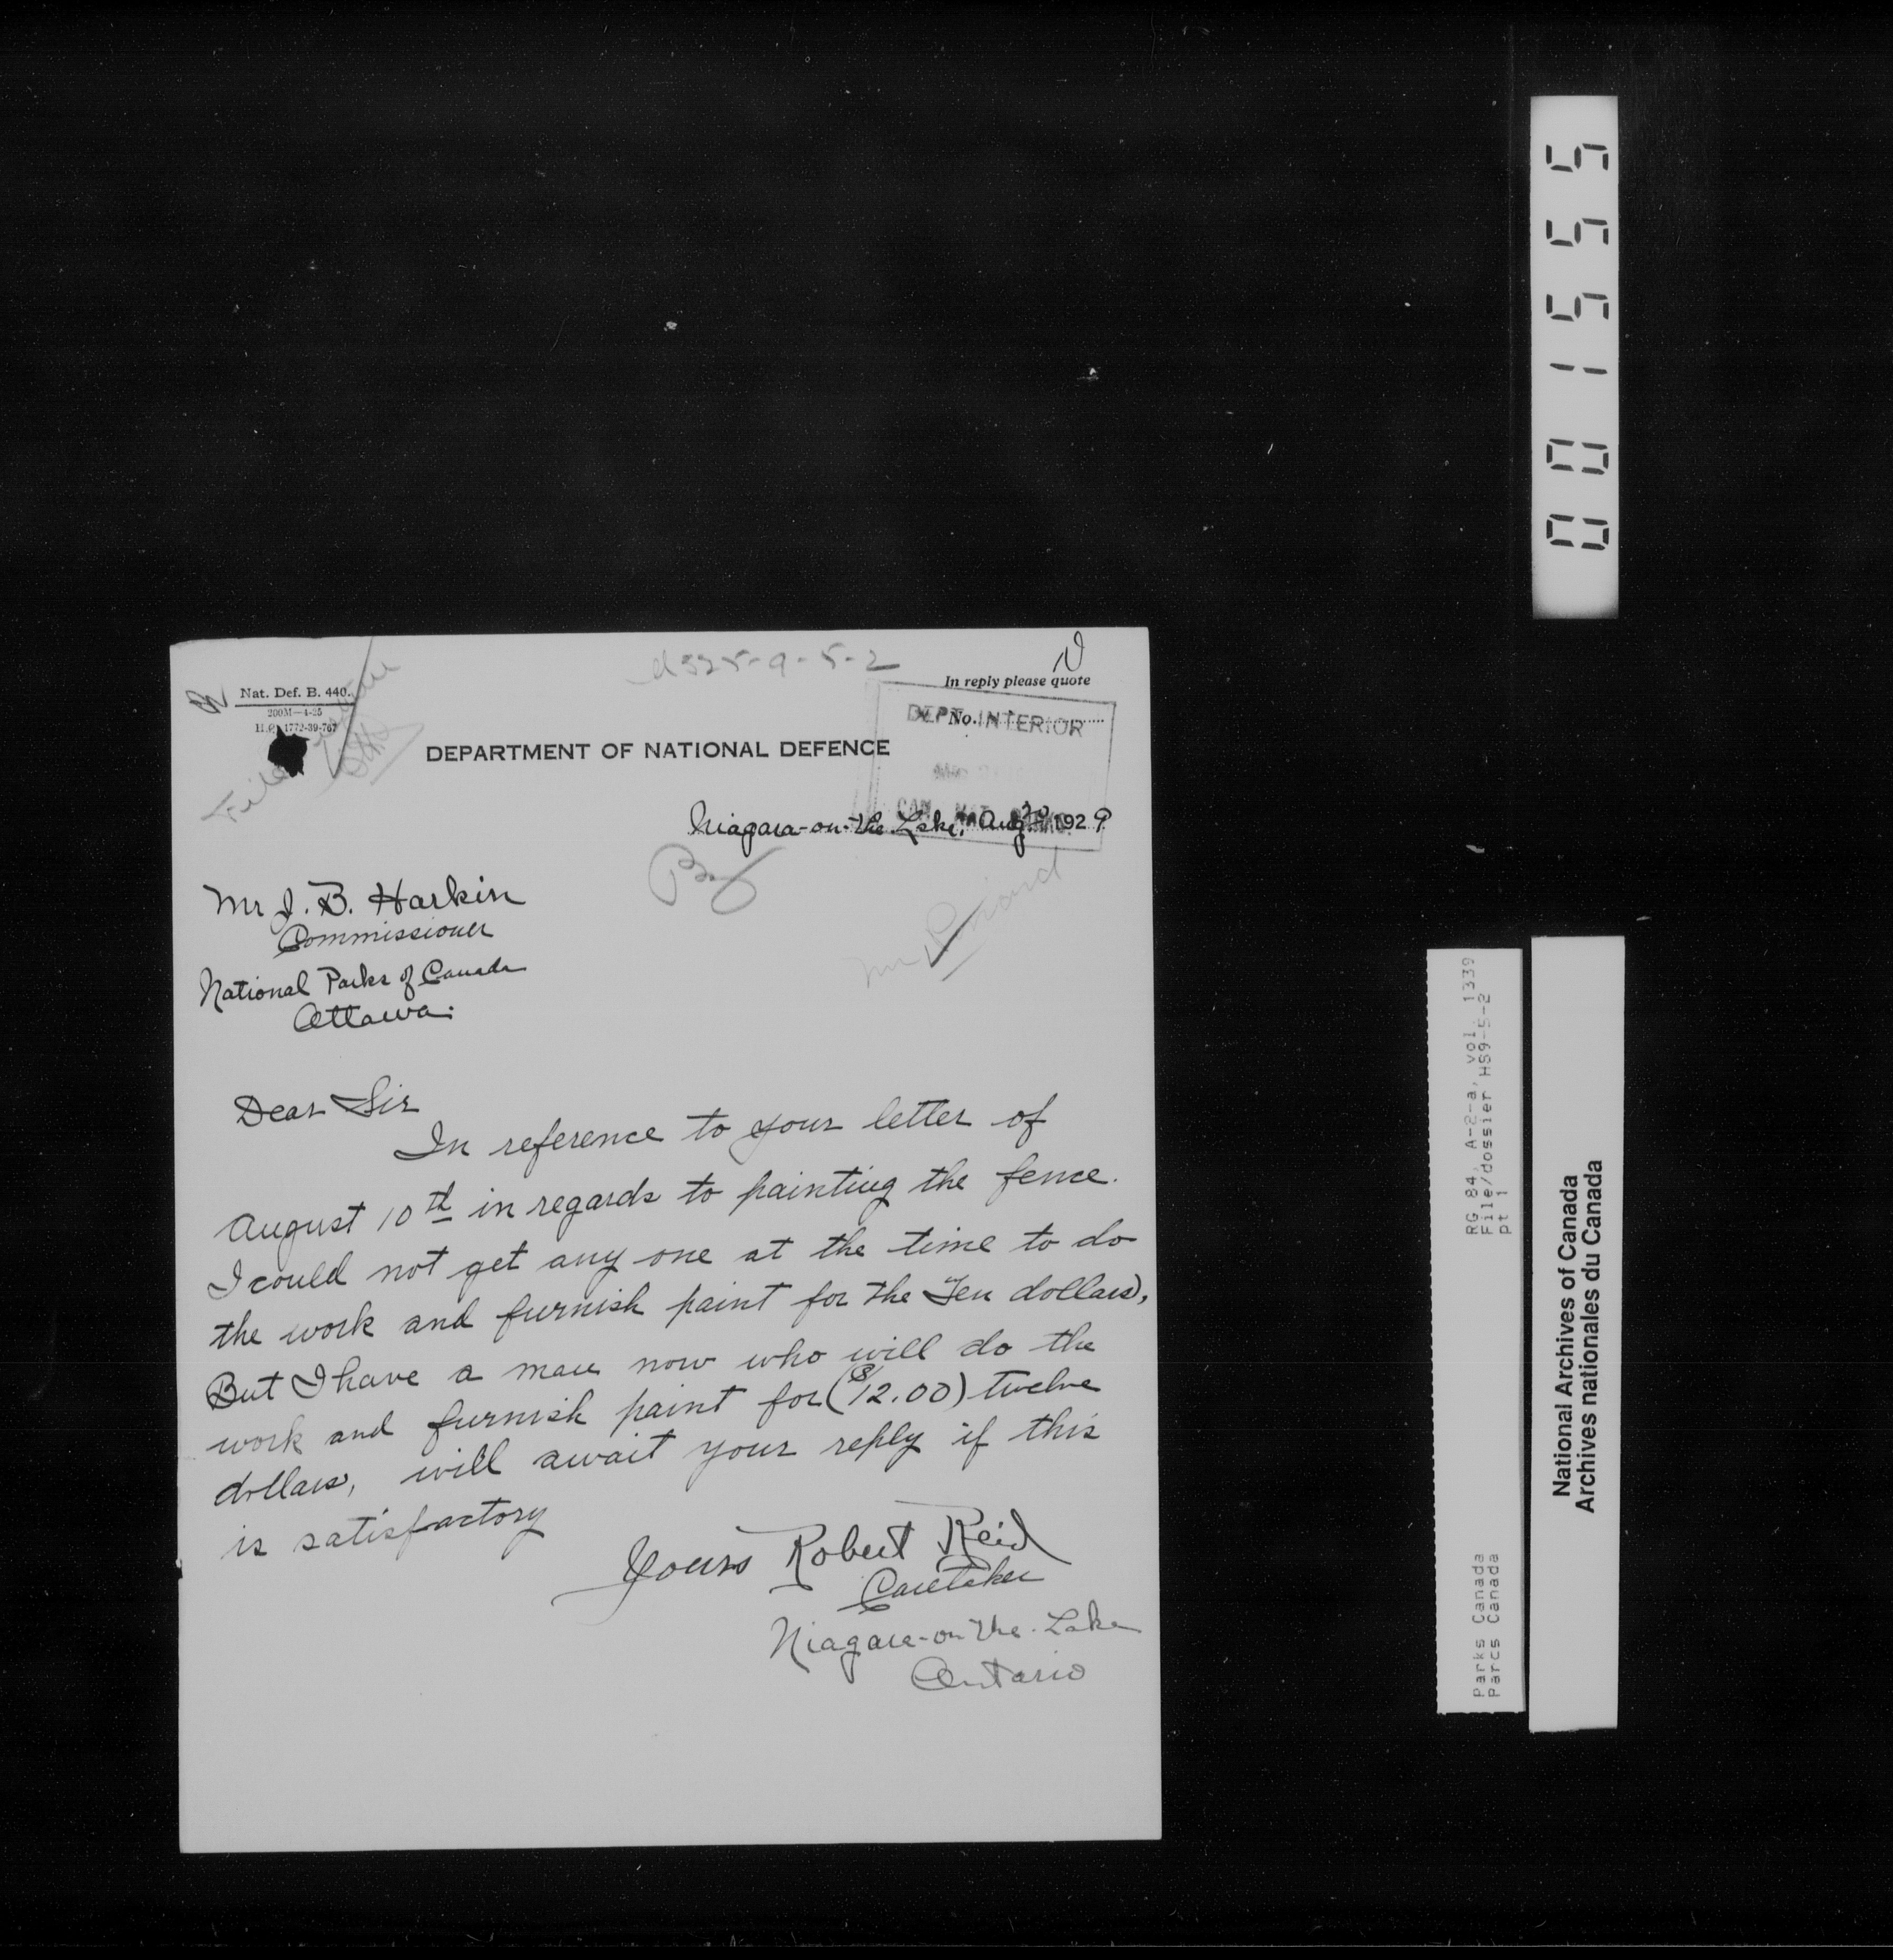 d325-9-5-2
In reply please quote
Nat. Def. B. 440.
200M—4-25
H.Q. 1772-39-767
No.
DEPT. INTERIOR
DEPARTMENT OF NATIONAL DEFENCE
Niagara-on-the Lake, Aug 1929
Mr J. B. Harkin
Commissioner
National Parks of Canada
Ottawa.
Dear Sir
In reference to your letter of
August 10th in regards to painting the fence.
I could not get any one at the time to do
the work and furnish paint for the Ten dollars,
But I have a man now who will do the
work and furnish paint for ($12.00) twelve
dollars, will await your reply if this
is satisfactory
Yours Robert Reid
Caretaker
Niagara-on-the-Lake
Ontario
001555
RG 84, A-2-a, vol. 1339
File/dossier HS9-5-2
pt 1
Parks Canada
Parcs Canada
National Archives of Canada
Archives nationales du Canada